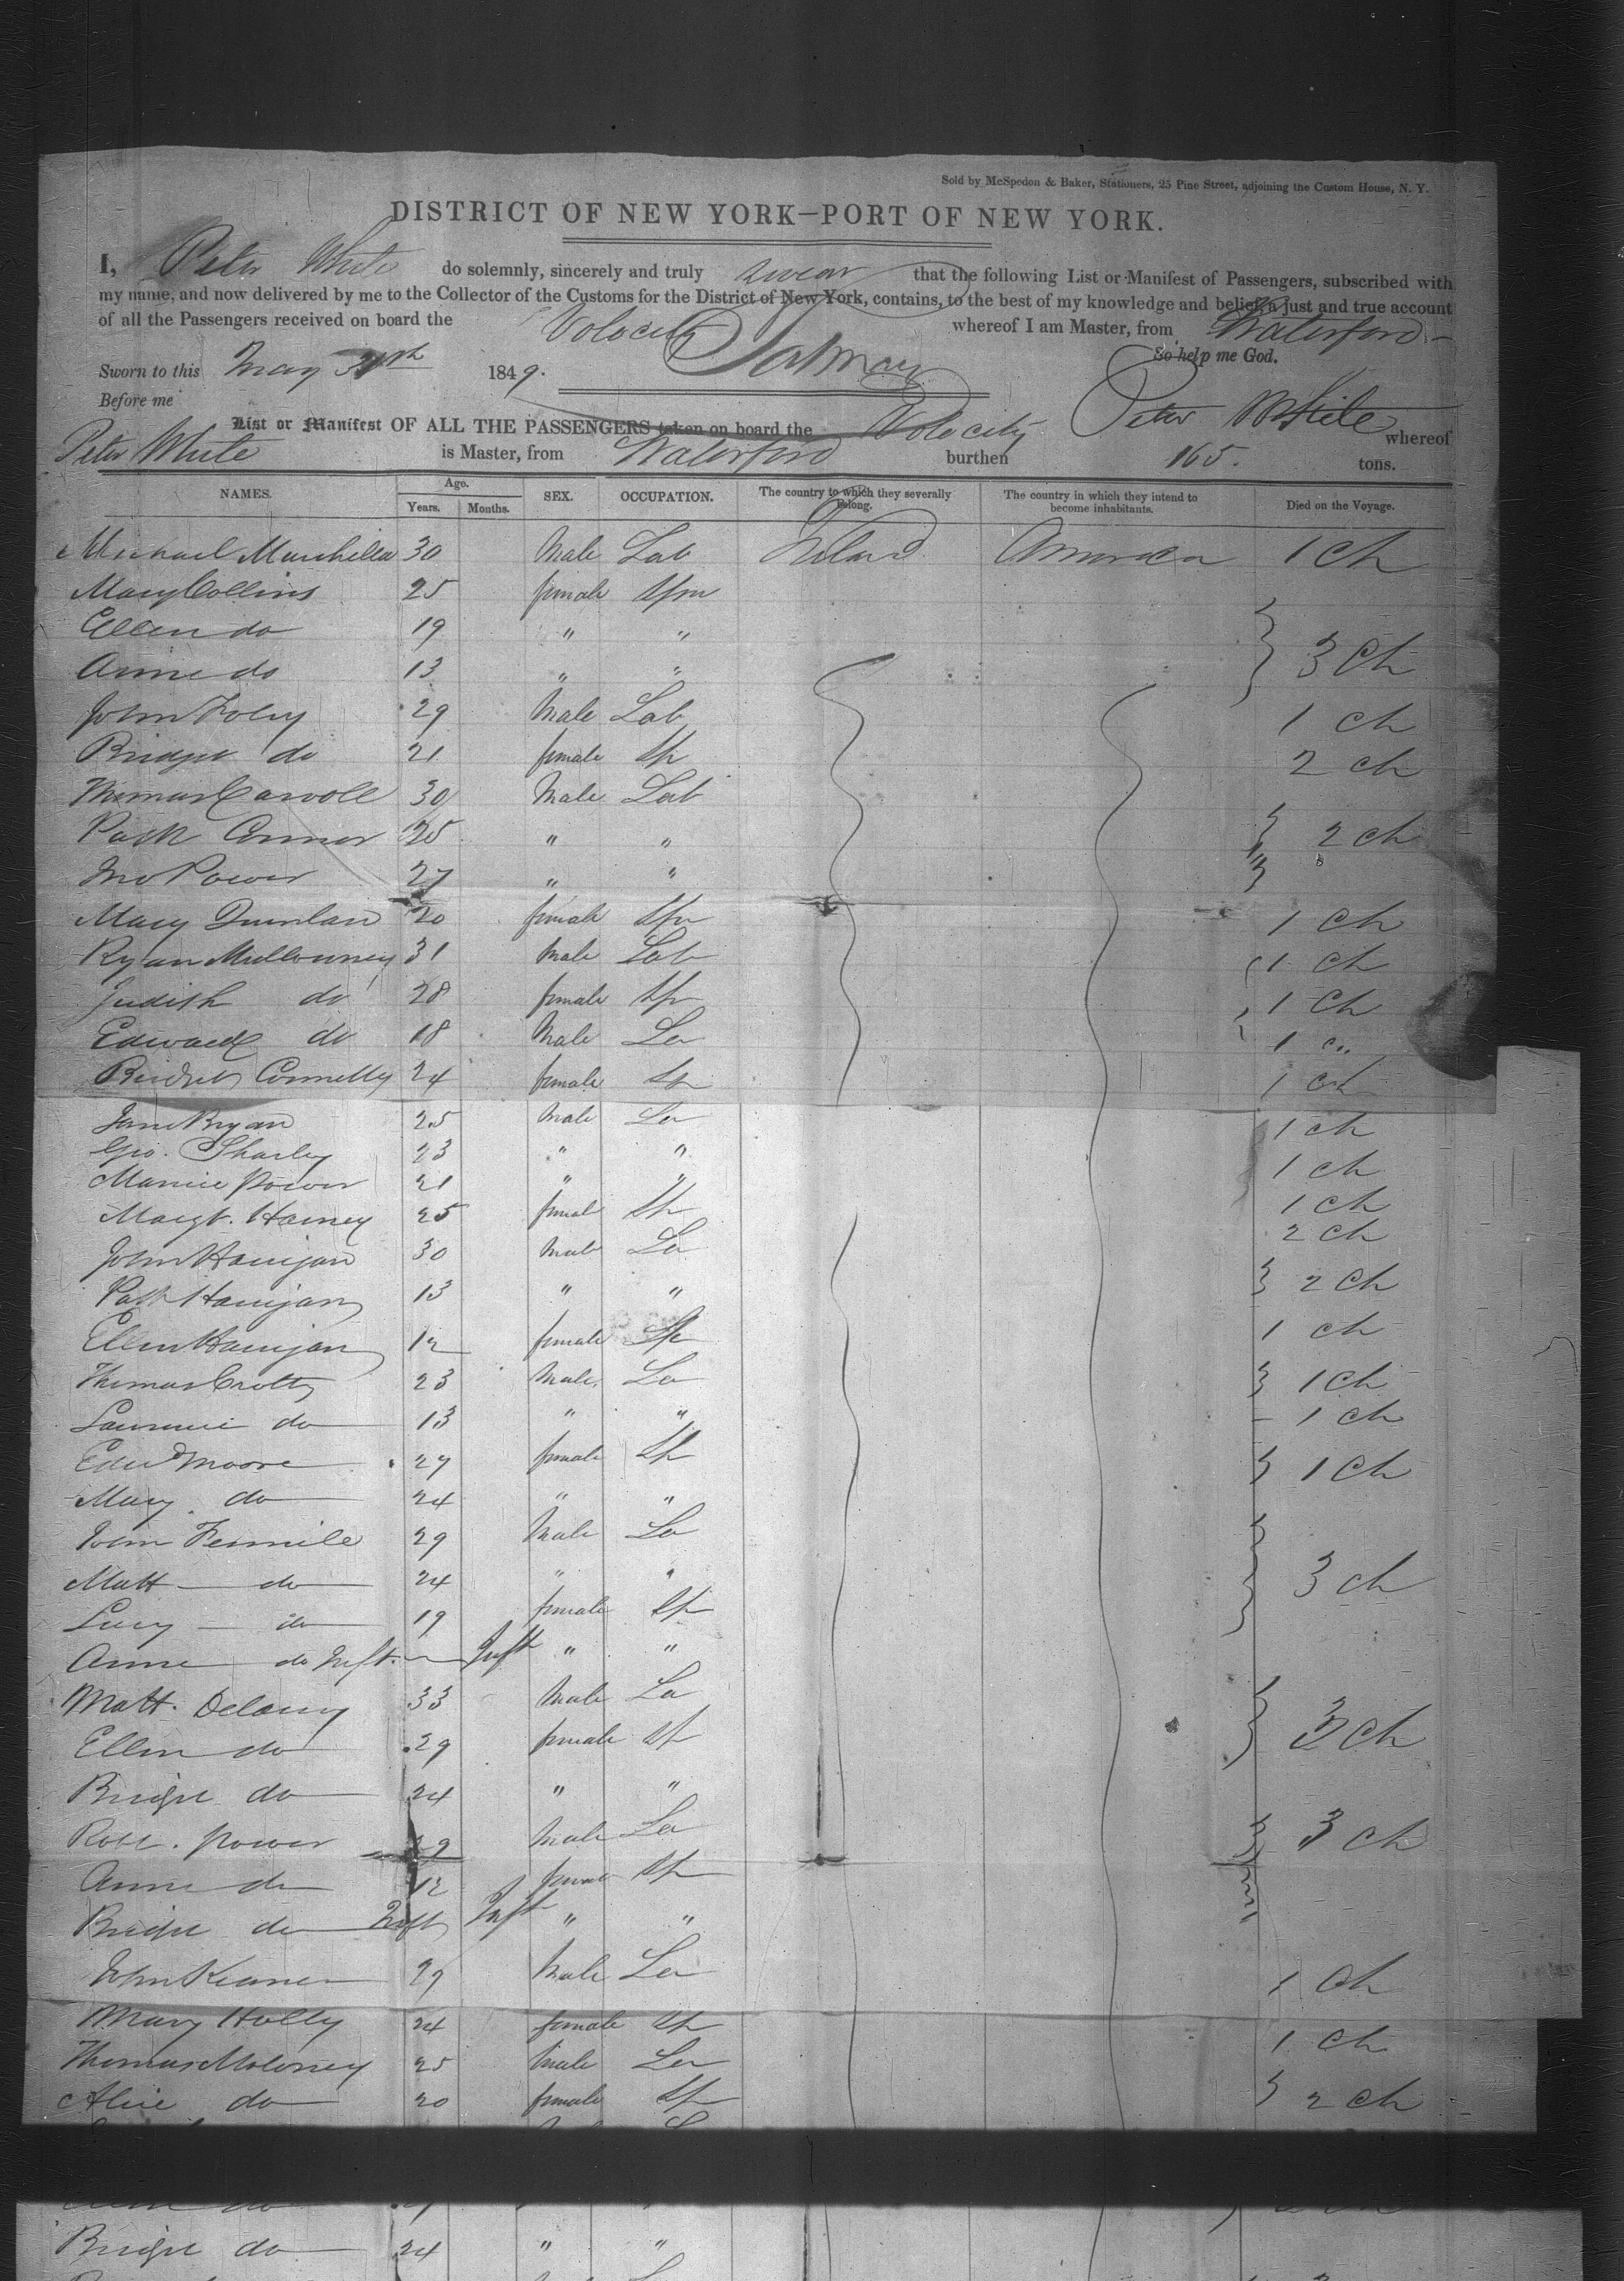 Sold by McSpedon & Baker, Stationers, 25 Pine Street, adjoining the Custom House, N. Y.
DISTRICT OF NEW YORK—PORT OF NEW YORK.
I, Peter White do solemnly, sincerely and truly swear that the following List or Manifest of Passengers, subscribed with
my name, and now delivered by me to the Collector of the Customs for the District of New York, contains, to the best of my knowledge and belief, a just and true account
of all the Passengers received on board the Volocity whereof I am Master, from Waterford
So help me God.
Sworn to this May 31th 1849.
Before me Peter White
List or Manifest OF ALL THE PASSENGERS taken on board the Volocity whereof
Peter White is Master, from Waterford burthen 165. tons.
NAMES. Age. Years. Months. SEX. OCCUPATION. The country to which they severally belong. The country in which they intend to become inhabitants. Died on the Voyage.
Michael 30 Male Lab Ireland America 1 Ch
Mary Collins 25 female Spn
Ellen do 19 " "
Anne do 13 " " 3 Ch
John Foley 29 Male Lab 1 ch
Bridget do 21 female Sp 2 ch
Thomas Carroll 30 Male Lab
Patk Connor 25 " " 2 ch
Jno Power 27 " "
Mary Quinlan 20 female Spn 1 Ch
Ryan Mullowney 31 Male Lab 1 Ch
Judith do 28 female Sp 1 Ch
Edward do 18 Male La 1 c"
Bridget Connelly 24 female Sp 1 ch
Jame Bryan 25 Male La 1 ch
Geo. Sharley 23 " " 1 ch
Maurice Power 21 " " 1 ch
Margt. Haney 25 femal Sp 2 ch
John Hanigan 30 Male La
Patk Hanigan 13 " " 2 Ch
Ellen Hanigan 12 female Sp 1 ch
Thomas Crotty 23 Male La 1 Ch
Laurence do 13 " " 1 ch
Edwd Moore 27 female Sp 1 Ch
Mary do 24 " "
John Fennile 29 Male La
Matt do 24 " " 3 ch
Lucy do 19 female Sp
Anne do Inft. Inft " "
Matt. Delany 33 Male La
Ellen do 29 female Sp 3 Ch
Bridget do 24 " "
Robt. Power 29 Male La 3 ch
Anne do 12 female Sp
Bridget do Inft Inft " "
John Keane 27 Male La 1 Ch
Mary Holly 24 female Sp 1 Ch
Thomas Moloney 25 Male La
Alice do 20 female Sp 2 ch
Bridget do 24 " "